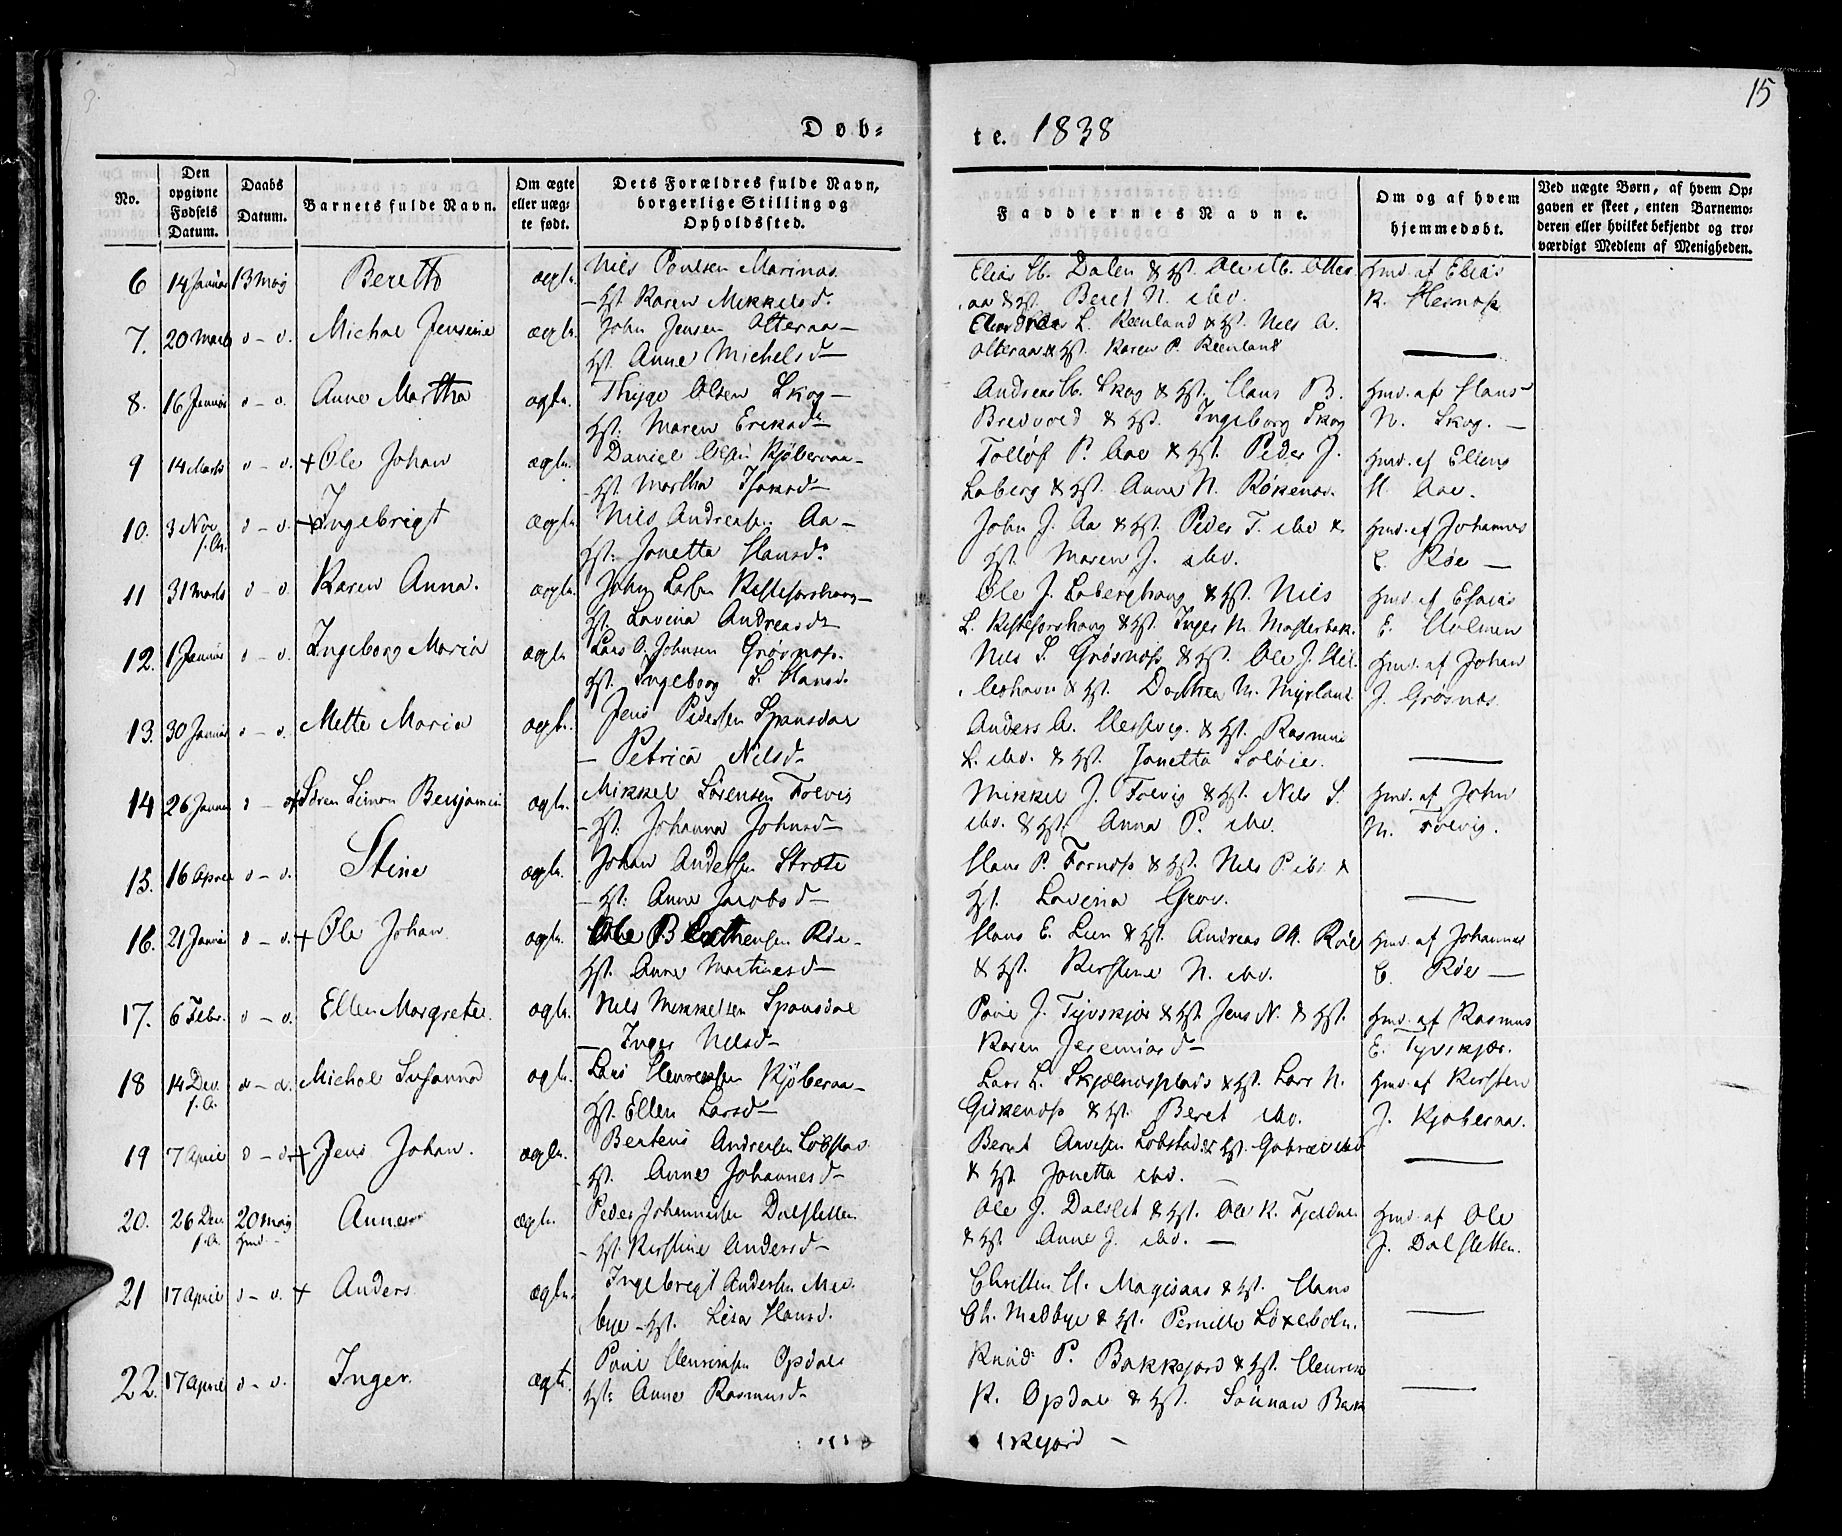 15
Døb-
te. 1838
No.
Den
opgivne
Fødsels
Datum.
Daabs
Datum.
Barnets fulde Navn.
Om ægte
eller uæg-
te født.
Dets Forældres fulde Navn,
borgerlige Stilling og
Opholdssted.
Faddernes Navne.
Om og af hvem
hjemmedøbt.
Ved uægte Børn, af hvem Op-
gaven er skeet, enten Barnemo-
deren eller hvilket bekjendt og tro-
værdigt Medlem af Menigheden.
6 14 Januar 13 Maj Bereth ægte. Nils Poulsen
Hst. Karen Mikkelsd.
Elias Dalen & Hst.
& Hst. Beret N. ibd.
Hmd. af Elias
7. 20 Marts d - o. Michal Jensine ægte. John Jensen Alteraa -
Hst. Anne Michelsd -
L. Reenland & Hst. Nils A.
Alteraa & Hst. Karen P. Reenland
8. 16 Januar d - o. Anne Martha ægte. Thyge Olsen Skog -
Hst: Maren Ericksd.
Andreas Skog & Hst. Hans B.
Bredvold & Hst. Ingeborg Skog
Hmd. af Hans
N. Skog. -
9 14 Marts d - o. + Ole Johan ægte. Daniel Olsen Kjøberaa -
Hst. Martha Isaksd -
Tolløf P. Aae & Hst. Peder J.
Laberg & Hst. Anne N.
Hmd. af Ellens
H. Aae.
10. 3 Nov. f. A. d - o. + Ingebrigt ægte. Nils Andreasen Aa -
Hst: Jonetta Hansd.
John J. Aa & Hst. Peder T. ibd &
Hst. Maren J. ibd.
Hmd. af Johannes
C. Røe -
11 31 Marts d - o. Karen Anna. ægte. Johan Larsen
Hst: Lavina Andreasd -
Ole J. Laberghaug & Hst. Nils
L. & Hst. Inger M.
Hmd. af Esaias
E. Holmen
12. 1 Januar d - o. Ingeborg Maria ægte. Lars O. Johnsen Grøsnæss.
Hst. Ingeborg S. Hansd.
Nils S. Grøsnæss & Hst. Ole J.
& Hst. Dorthea M. Myrland
Hmd. af Johan
J. Grøsnæs
13. 30 Januar d - o. Mette Maria ægte. Jens Pedersen Spansdal
- Petrica Nilsd -
Anders A. & Hst. Rasmus
L. ibd. & Hst. Jonetta Soløie.
14 26 Januar d - o + Søren Simon Benjamin ægte. Mikkel Sørensen Foevig
- Hst: Johanna Johnsd -
Mikkel J. Foevig & Hst. Nils S.
ibd. & Hst. Anna P. ibd.
Hmd. af John
M. Foevig.
15. 16 April d - o. Stine ægte. Johan Andersen Strøte
- Hst: Anne Jacobsd -
Hans P. Fornæss & Hst. Nils P. ibd &
Hst. Lovena Grov.
16. 21 Januar d - o. + Ole Johan ægte. Ole B. Røe -
Hst. Anne Martinesd -
Hans E. Lien & Hst. Andreas M. Røe
& Hst. Kerstine N. ibd.
Hmd. af Johannes
C. Røe -
17. 6 Febr. d - o. Ellen Margrete. ægte. Nils Mikkelsen Spansdal
- Inger Nilsd -
Povel J. Tyvskjær & Hst. Jens N. & Hst.
Karen Jeremiasd -
Hmd. af Rasmus
E. Tyvskjær.
18 14 Dec. f. A. d - o. Michal Susanna ægte. Lars Henriksen Kjøberaa -
Hst. Ellen Larsd -
Lars L. & Hst. Lars N.
& Hst. Beret ibd.
Hmd. af Kersten
J. Kjøberaa.
19 7 April d - o. + Jens Johan. ægte. Berteus Andreasen Lobstad
Hst. Anne Johannesd -
Bernt Lobstad & Hst. Gabriel ibd
& Hst. Jonetta ibd. -
20. 26 Dec. f. A. 20 Maj Hmd. Anne ægte. Peder Johannessen Dalsletten
- Hst. Kerstine Andersd -
Ole J. Dalslet & Hst. Ole K.
& Hst. Anne J. ibd. -
Hmd. af Ole
J. Dalsletten.
21 17 April d - o. + Anders ægte. Ingebrigt Andersen Med-
bye - Hst. Lisa Hansd.
Christen H. Magisaas & Hst. Hans
Ch. Medbye & Hst. Pernille
22. 17 April d - o. Inger. ægte. Povel Henriksen Opdal
Hst: Anne Rasmusd -
Knud P. Bakkejord & Hst. Henrik
K. Opdal & Hst. Bak
kejord -